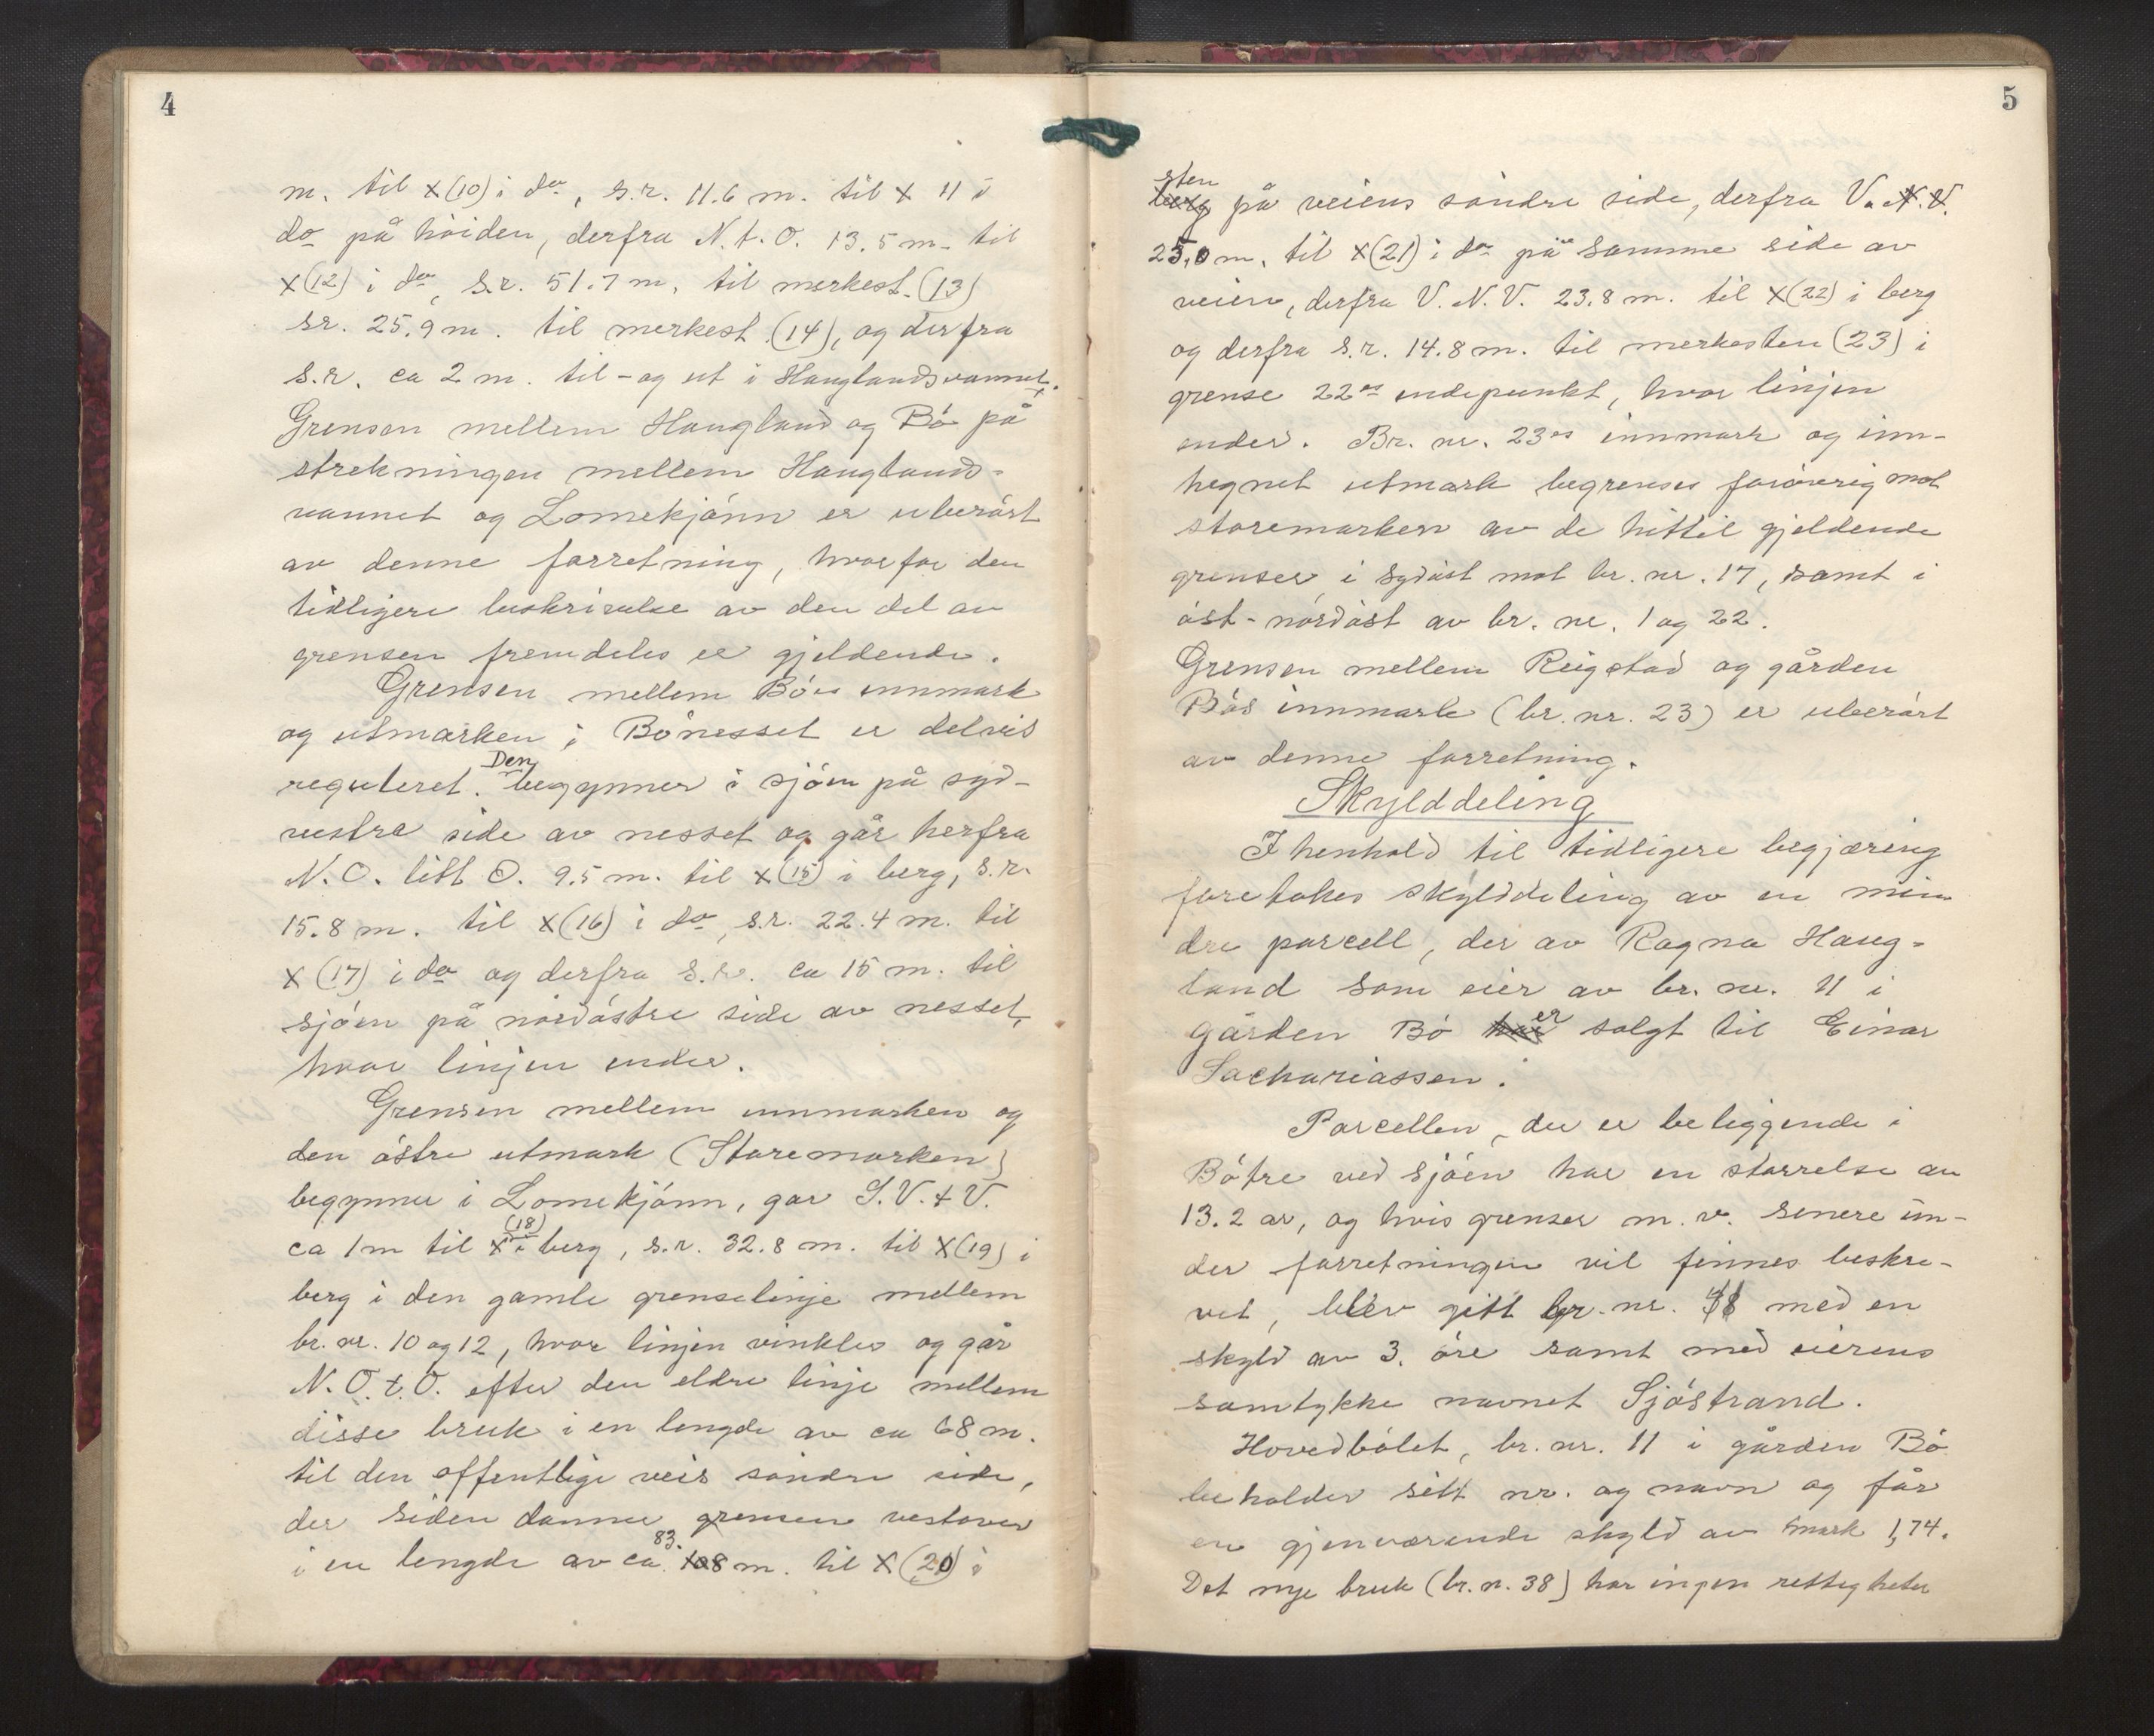 4
m. til x (10) i do, s.r. 11.6 m. til x 11 i
do på höiden, derfra N.t.O. 13.5 m. til
x (12) i do, s.r. 51.7 m. til merkest. (13)
sr. 25.9 m. til merkest. (14), og derfra
s.r. ca 2 m. til - og ut i Hauglandsvannet.
Grensen mellem Haugland og Bö på
strekningen mellem Hauglands-
vannet og Lomekjönn er uberört
av denne forretning, hvorfor den
tidligere beskrivelse av den del av
grensen fremdeles er gjeldende.
Grensen mellem Bös innmark
og utmarken i Bönesset er delvis
regulert. Den begynner i sjöen på syd-
vestre side av nesset og går herfra
N.O. litt O. 9.5 m. til x (15) i berg, s.r.
15.8 m. til x (16) i do, s.r. 22.4 m. til
x (17) i do og derfra s.r. ca 15 m. til
sjöen på nordöstre side av nesset,
hvor linjen ender.
Grensen mellem innmarken og
den östre utmark (Storemarken)
begynner i Lomekjönn, gar S.V.t V.
ca 1 m til x (18) i berg, s.r. 32.8 m. til x (19) i
berg i den gamle grenselinje mellem
br. nr. 10 og 12, hvor linjen vinkles og går
N.O.t.O. efter den eldre linje mellem
disse bruk i en lengde av ca 68 m.
til den offentlige veis söndre side,
der siden danner grensen vestover
i en lengde av ca. 83 108 m. til x (20) i
5
sten
berg på veiens söndre side, derfra V. N. V.
25,0 m. til x (21) i do på samme side av
veien, derfra V. N. V. 23.8 m. til x (22) i berg
og derfra s.r. 14.8 m. til merkesten (23) i
grense 22es endepunkt, hvor linjen
ender. Br. nr. 23es innmark og inn-
hegnet utmark begrenses foröverig mot
storemarken av de hittil gjeldende
grenser, i sydöst mot br. nr. 17, samt i
öst-nordöst av br. nr. 1 og 22.
Grensen mellem Reigstad og gården
Bös innmark (br. nr. 23) er uberört
av denne forretning.
Skylddeling
I henhold til tidligere begjæring
foretokes skylddeling av en min-
dre parcell, der av Ragna Haug-
land som eier av br. nr. 11 i
gården Bö har er solgt til Einar
Sachariassen.
Parcellen, der er beliggende i
Bötre ved sjöen har en störrelse av
13.2 ar, og hvis grenser m. v. senere un-
der forretningen vil finnes beskre-
vet, blev gitt br. nr. 38 med en
skyld av 3. öre samt med eierens
samtykke navnet Sjöstrand.
Hovedbölet, br. nr. 11 i gården Bö
beholder sitt nr. og navn og får
en gjenværende skyld av mark 1,74.
Det nye bruk (br. n. 38) har ingen rettigheter